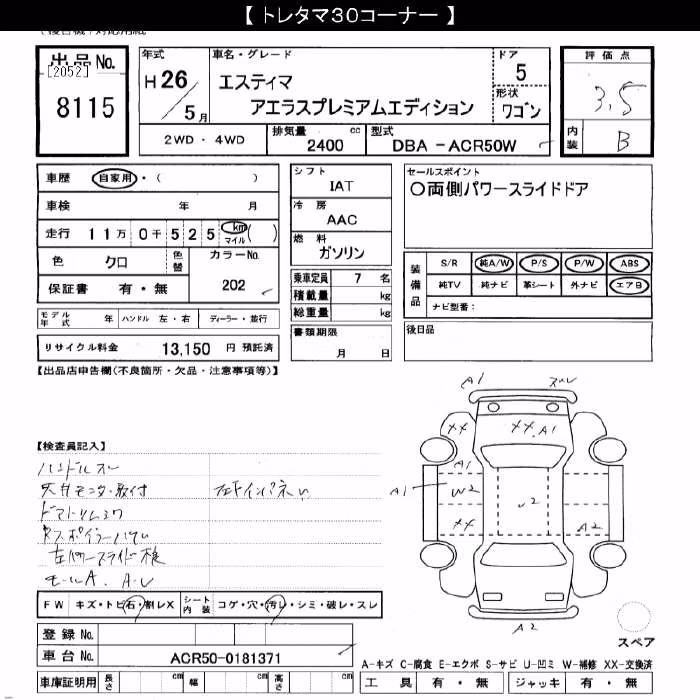 【 トレタマ30コーナー 】
出品No.
[2052]
8115
年式
H 26
/ 5月
車名・グレード
エスティマ
アエラスプレミアムエディション
ドア
5
形状
ワゴン
評価点
3.5
内装
B
2WD ・ 4WD
排気量
cc
2400
型式
DBA - ACR50W
車歴
自家用 ・ ( )
車検
年 月
走行
11万 0千 525 km ( )
マイル
色
クロ
色替
カラーNo.
202
保証書
有 ・ 無
シフト
IAT
冷房
AAC
燃料
ガソリン
乗車定員 7 名
積載量 kg
総重量 kg
書類期限
月 日
セールスポイント
〇両側パワースライドドア
装備品
S/R 純A/W P/S P/W ABS
純TV 純ナビ 革シート 外ナビ エアB
ナビ型番:
後日品
モデル年式 年 ハンドル 左・右 ディーラー・並行
リサイクル料金 13,150 円 預託済
【出品店申告欄(不良箇所・欠品・注意事項等)】
【検査員記入】
天井モニタ・取付
モールA.
A1
XX
XX A1
A1
A1
W2
XX
A2
A2
FW キズ・トビ石・割レX
シート内装 コゲ・穴・汚レ・シミ・破レ・スレ
登録No.
車台No. ACR50-0181371
車庫証明用 長さ cm 幅 cm 高さ cm
スペア
A-キズ C-腐食 E-エクボ S-サビ U-凹ミ W-補修 XX-交換済
工具 有 ・ 無 ジャッキ 有 ・ 無